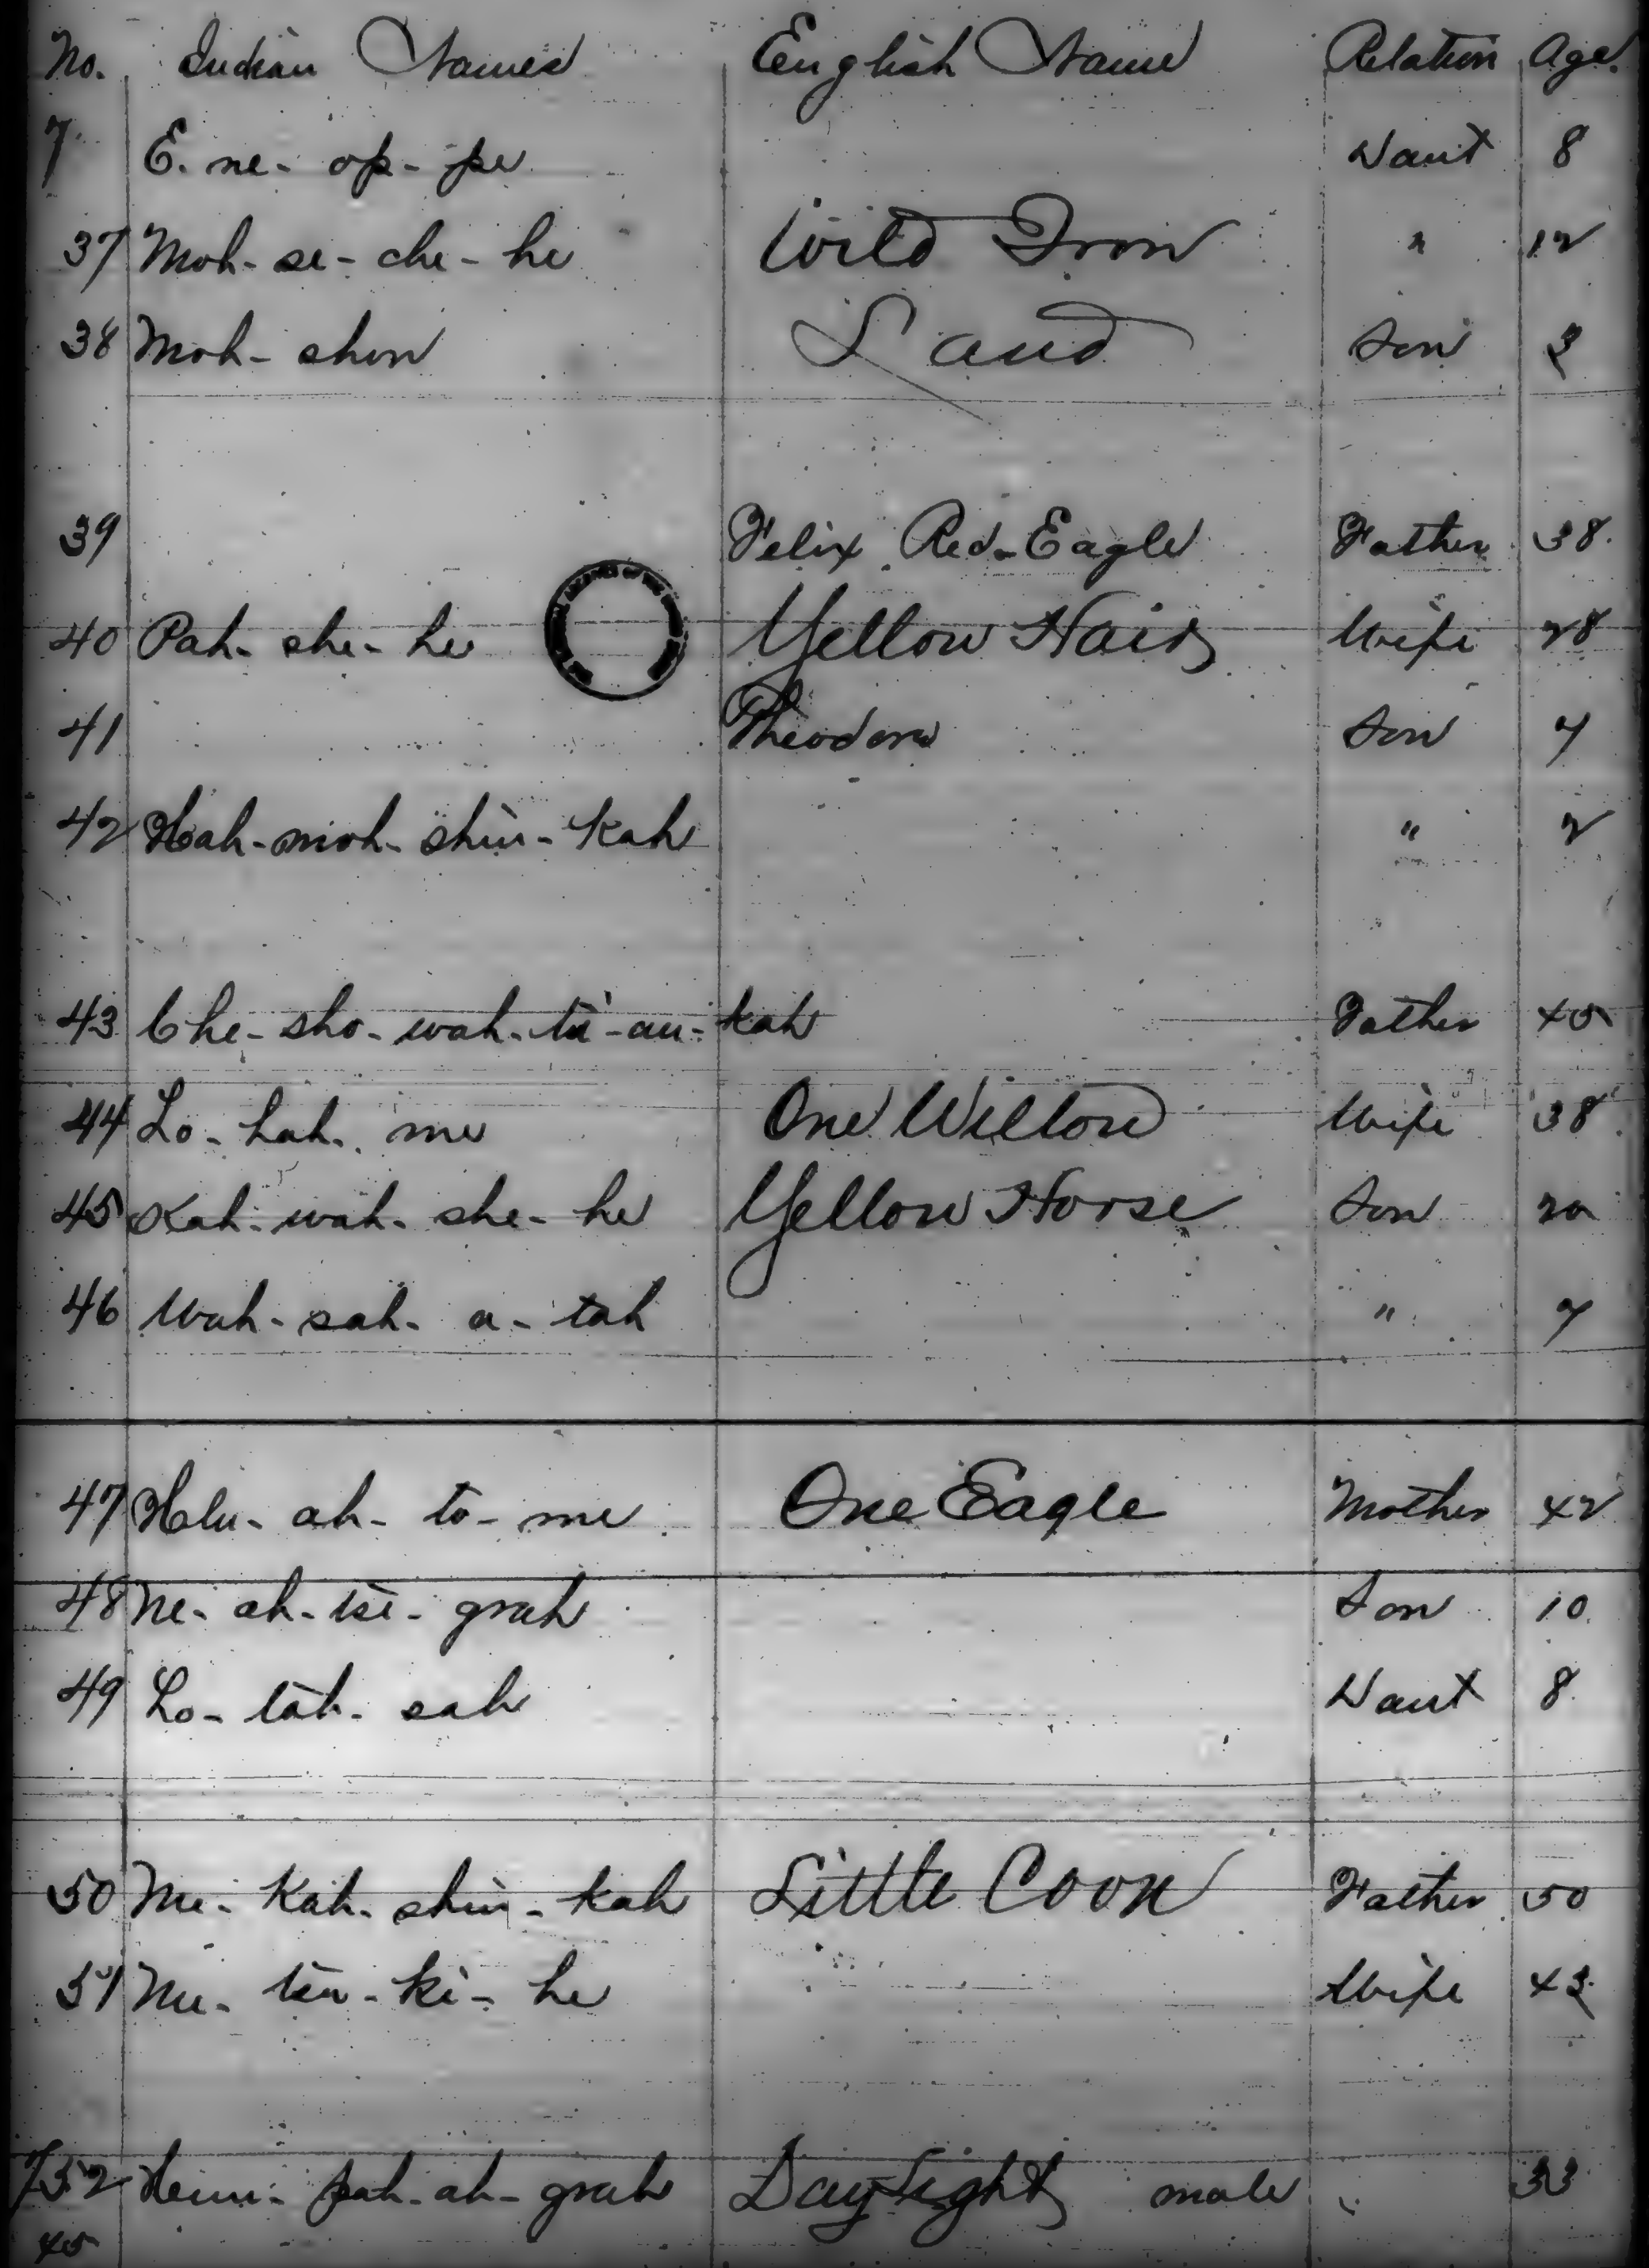 No. Indian Names English Name Relation Age.
7 E. ne- op- pe Daut 8
37 Moh- se- che- he Wild Iron " 12
38 Moh- shon Land Son 3
39 Felix Red-Eagle Father 38
40 Pah- she- he Yellow Hair Wife 28
41 Theodore Son 7
42 Hah-moh-shin-kah " 2
43 Che-sho-wah-ti-an-kah Father 45
44 Lo-hah. me One Willow Wife 38
45 Kah-wah-she-he Yellow Horse Son 20
46 Wah-sah-a-tah " 7
47 Hlu-ah-to-me One Eagle Mother 42
48 Ne-ah-tse-grah Son 10
49 Lo-tah-sah Daut 8
50 Me-kah-shin-kah Little Coon Father 50
51 ki-he Wife 43
52 pah-ah-grah Daylight male 33
45